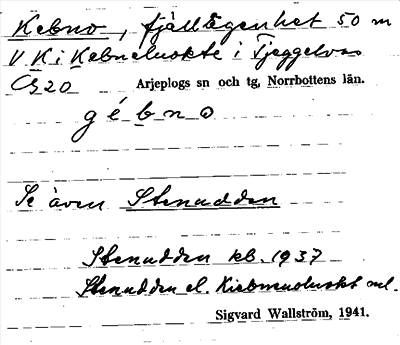 Kebno, fjällägenhet 50 m
V K i Kebneluokte i Tjeggelvas
Cg 20 Arjeplogs sn och tg, Norrbottens län.
gébno
Se även Stenudden
Stenudden kb. 1937
Stenudden el. Kiebmenoluokt ml.
Sigvard Wallström, 1941.